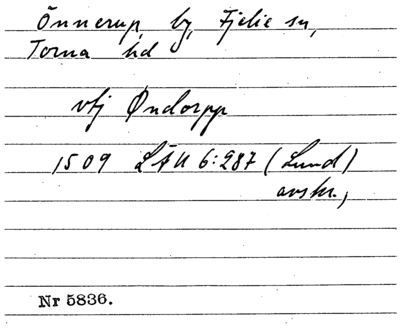 Önnerup, by, Fjelie sn,
Torna hd
vtj Øndorpp
1509 LÄU 6:287 (Lund)
avskr,
Nr 5836.